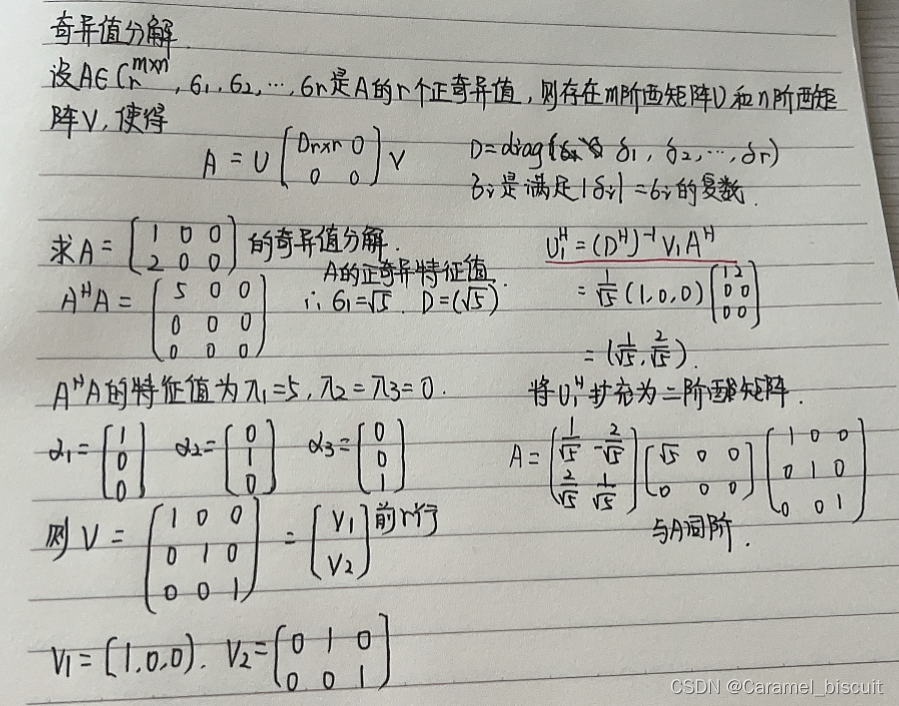 奇异值分解
设A∈C_r^{m×n}, σ₁, σ₂, …, σr是A的r个正奇异值, 则存在m阶酉矩阵U和n阶酉矩
阵V, 使得
A = U [Dr×r 0; 0 0] V
D = diag(δ₁, δ₂, …, δr)
δi是满足|δi| = σi的复数
求A = [1 0 0; 2 0 0] 的奇异值分解.
AᴴA = [5 0 0; 0 0 0; 0 0 0]
A的正奇异特征值
∴ σ₁=√5. D=(√5)
AᴴA的特征值为λ₁=5, λ₂=λ₃=0.
α₁ = [1; 0; 0] α₂ = [0; 1; 0] α₃ = [0; 0; 1]
则 V = [1 0 0; 0 1 0; 0 0 1] = [V₁; V₂] 前r行
V₁ = [1,0,0). V₂ = [0 1 0; 0 0 1]
U₁ᴴ = (Dᴴ)⁻¹V₁Aᴴ
= 1/√5 (1,0,0) [1 2; 0 0; 0 0]
= (1/√5, 2/√5).
将U₁ᴴ扩充为二阶酉矩阵.
A = [1/√5 -2/√5; 2/√5 1/√5] [√5 0 0; 0 0 0] [1 0 0; 0 1 0; 0 0 1]
与A同阶.
CSDN @Caramel_biscuit